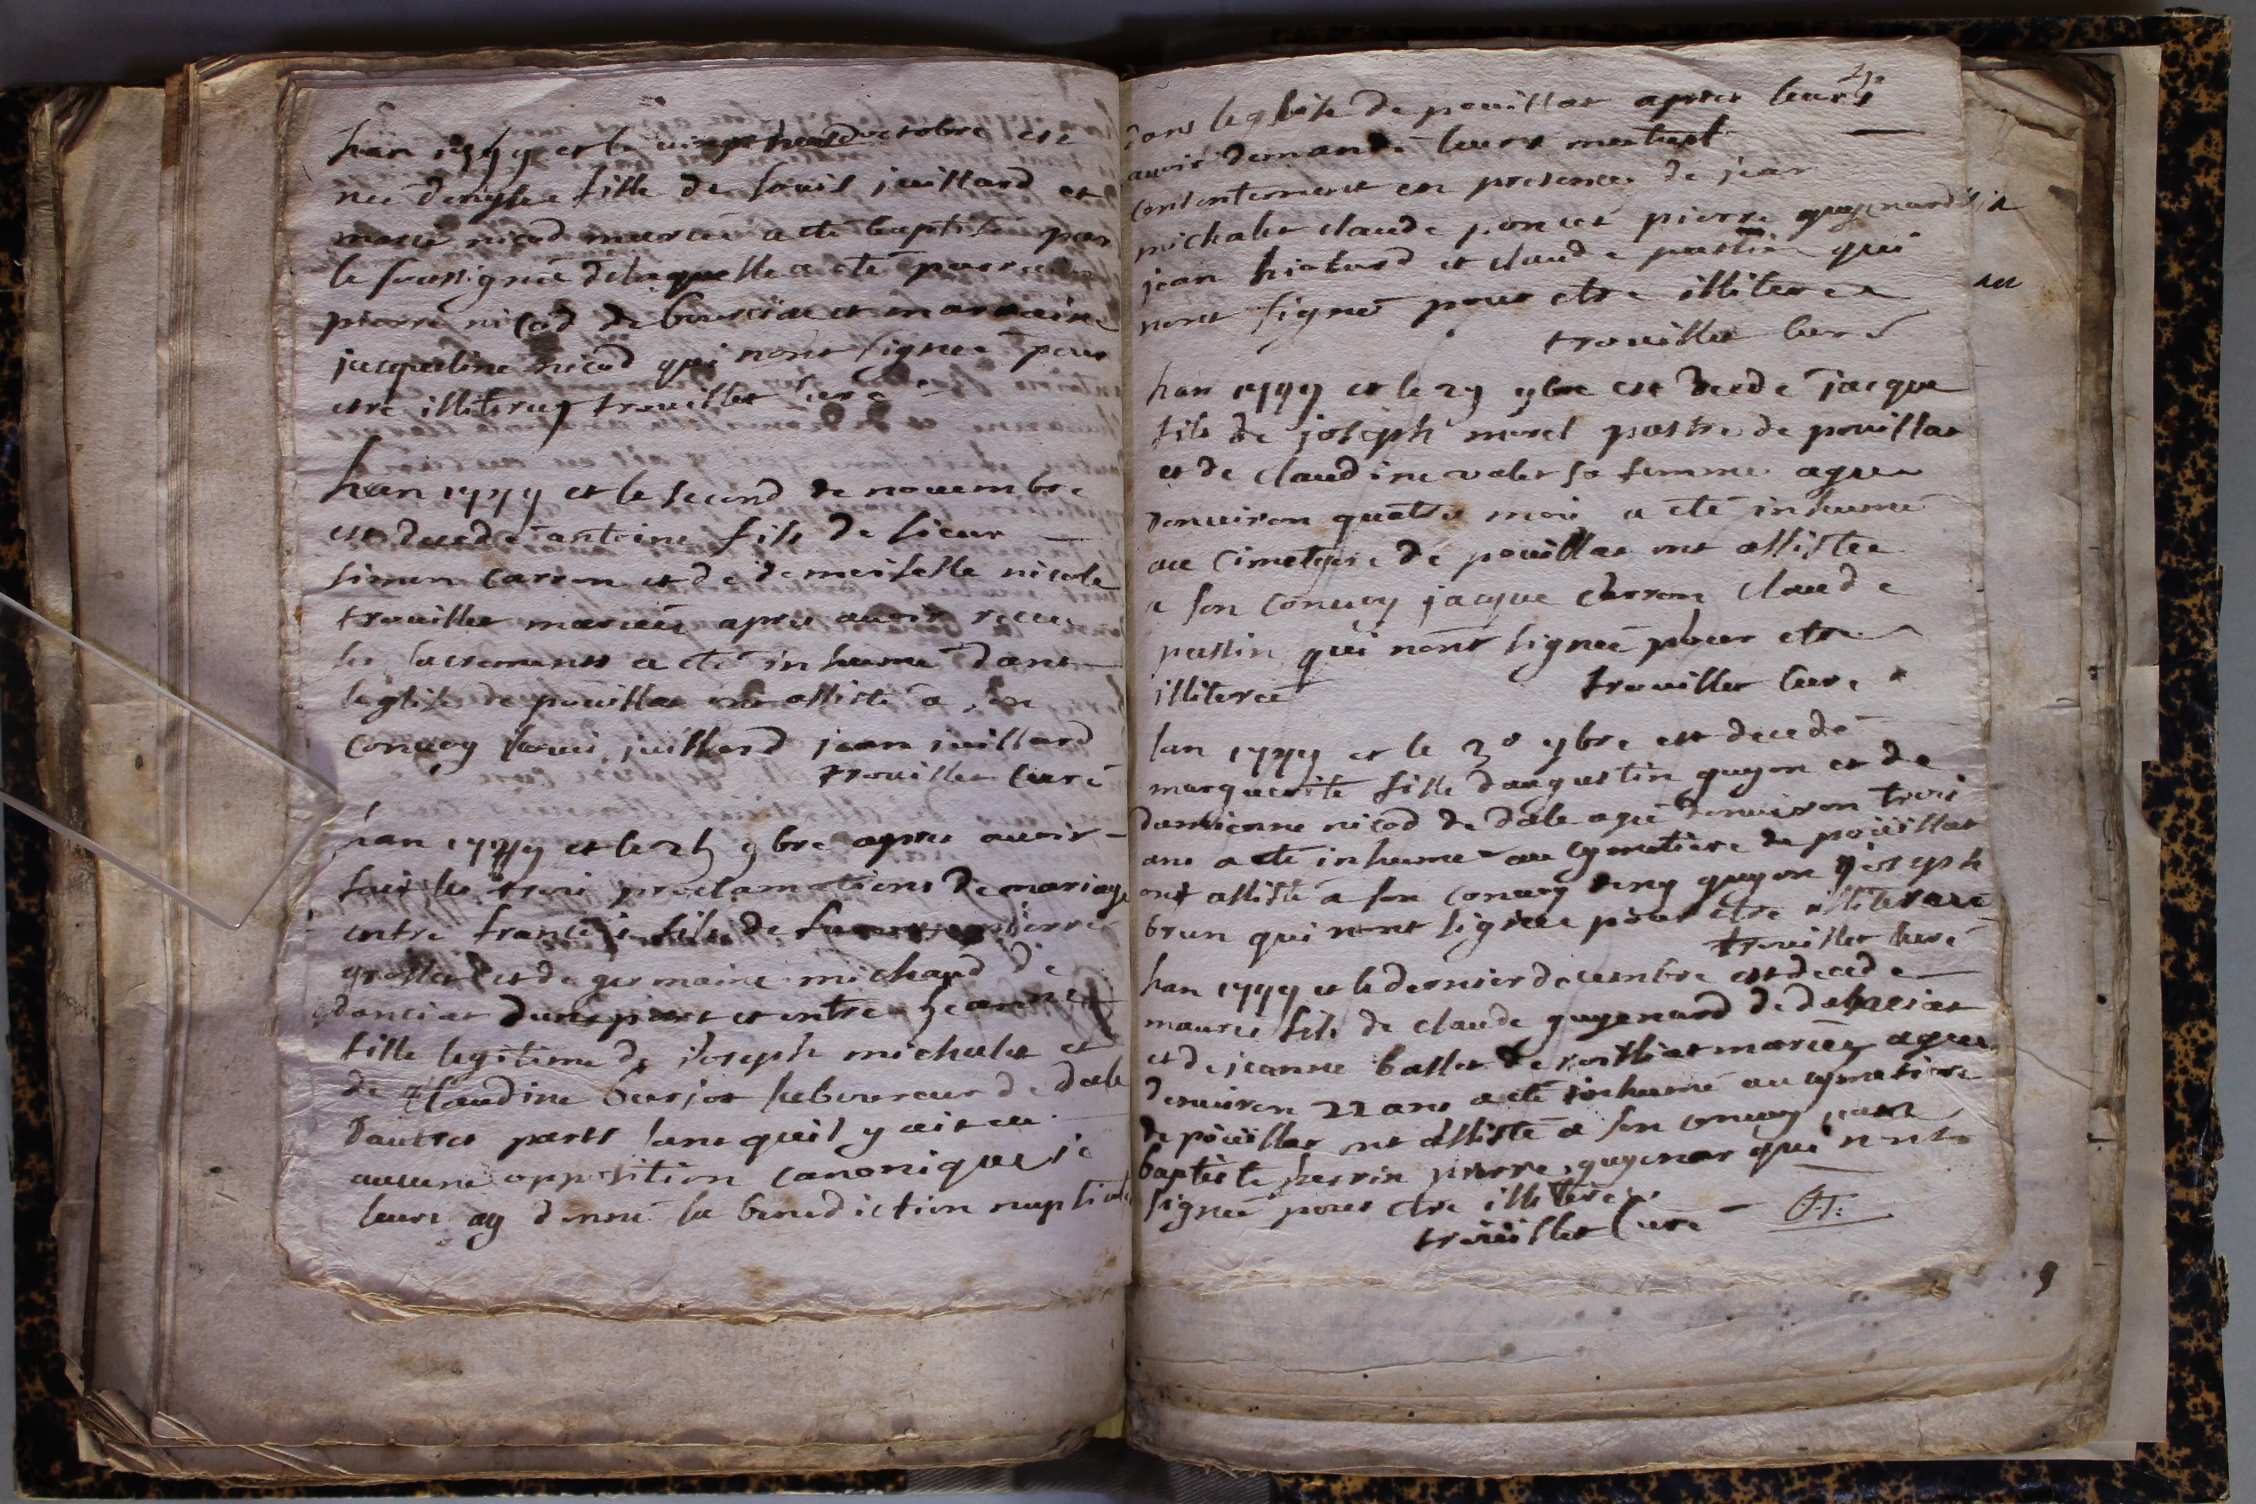 lan 1749 et le vingt octobre est
née denyse fille de louis juillard et
marie nicod mariée a eté baptisée par
le soussigné de laquelle a eté parrain
pierre nicod de et marraine
jacqueline nicod qui nont signée pour
etre illiterez trouillet curé
lan 1749 et le second de novembre
est decede antoine fils de sieur
simon carron et de demoiselle nicole
trouillet mariéz apres avoir receu
les sacremens a eté inhumé dans
leglise de pouillat ont assisté a son
convoy louis juillard jean juillard
trouillet curé
lan 1749 et le 25 9bre apres avoir
fait les trois proclamations de mariage
entre francois fils de pierre
et de germaine michaud de
dunepart et entre jeanne
fille legitime de joseph michalet et
de claudine laboureur de dale
dautres parts sans quil y ait eu
aucune opposition canonique je
leurs ay donné la benediction nuptiale
dans leglise de pouillat apres leurs
avoir demandé leurs mutuel
consentement en presence de jean
michalet claude poncet pierre guyenard
jean et claude pastin qui
nont signé pour etre illiteree
trouillet curé
lan 1749 et le 29 9bre est decede jacque
fils de joseph morel pastre de pouillat
et de claudine valet sa femme agee
denviron quatre mois a eté inhumé
au cimetyere de pouillat ont assistee
a son convoy jacque carron claude
pastin qui nont signeé pour etre
illitereé trouillet cure
lan 1749 et le 30 9bre est decedé
marguerite fille daugustin guyon et de
damienne nicod de dale agé denviron trois
ans a eté inhumé au cymetiere de pouillat
ont assisté a son convoy deny guyon joseph
brun qui nont signee pour etre illitereé
trouillet curé
lan 1749 et le dernier decembre est decede
mauris fils de claude guyenard de
et de jeanne ballet de mariéz agee
denviron 22 ans a eté inhumé au cymetiere
de pouillat ont assisté a son convoy jean
baptiste perrin pierre guyenar qui nont
signeé pour etre illiteree
trouillet curé